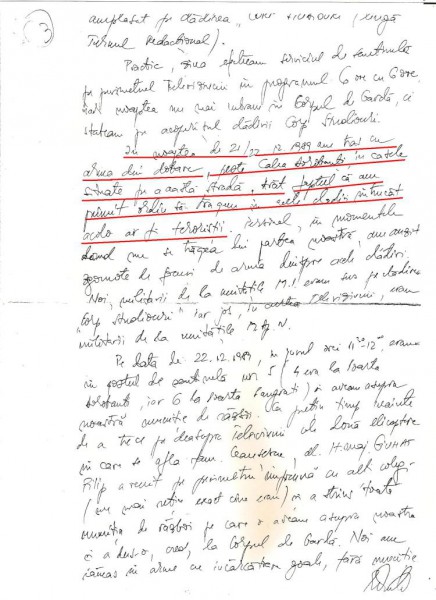 3
amplasat pe clădirea "Corp Studiouri" (lângă
Turnul Redacțional).
Practic, ziua efectuam serviciul de santinelă
pe perimetrul Televiziunii în programul 6 ore cu 6 ore
iar noaptea nu mai intram în Corpul de Gardă, ci
stăteam pe acoperișul clădirii Corp Studiouri.
În noaptea de 21/22.12.1989 am tras cu
arma din dotare, peste Calea Dorobanți, în casele
situate pe această stradă, dat faptul că am
primit ordin să tragem în acele clădiri întrucât
acolo ar fi teroriști. Personal, în momentele
când nu se trăgea din partea noastră, am auzit
zgomote de focuri de armă dinspre acele clădiri.
Noi, militarii de la unitățile M.I. eram sus pe clădirea
"Corp Studiouri" iar jos, în curtea Televiziunii, erau
militarii de la unitățile M.Ap.N.
Pe data de 22.12.1989, în jurul orei 11-12 eram
în postul de santinelă nr. 5 (4 era la Poarta
Dorobanți, iar 6 la Poarta Pangrati) și aveam asupra
noastră muniție de război. Cu puțin timp înainte
de a trece pe deasupra Televiziunii cele două elicoptere
în care se afla fam. Ceaușescu, dl. lt. maj.
Filip a venit pe perimetru împreună cu alt coleg
(nu mai rețin exact cine era) și a strâns toată
muniția de război pe care o aveam asupra noastră
și a dus-o, cred, la Corpul de Gardă. Noi am
rămas cu arme cu încărcătoare goale, fără muniție